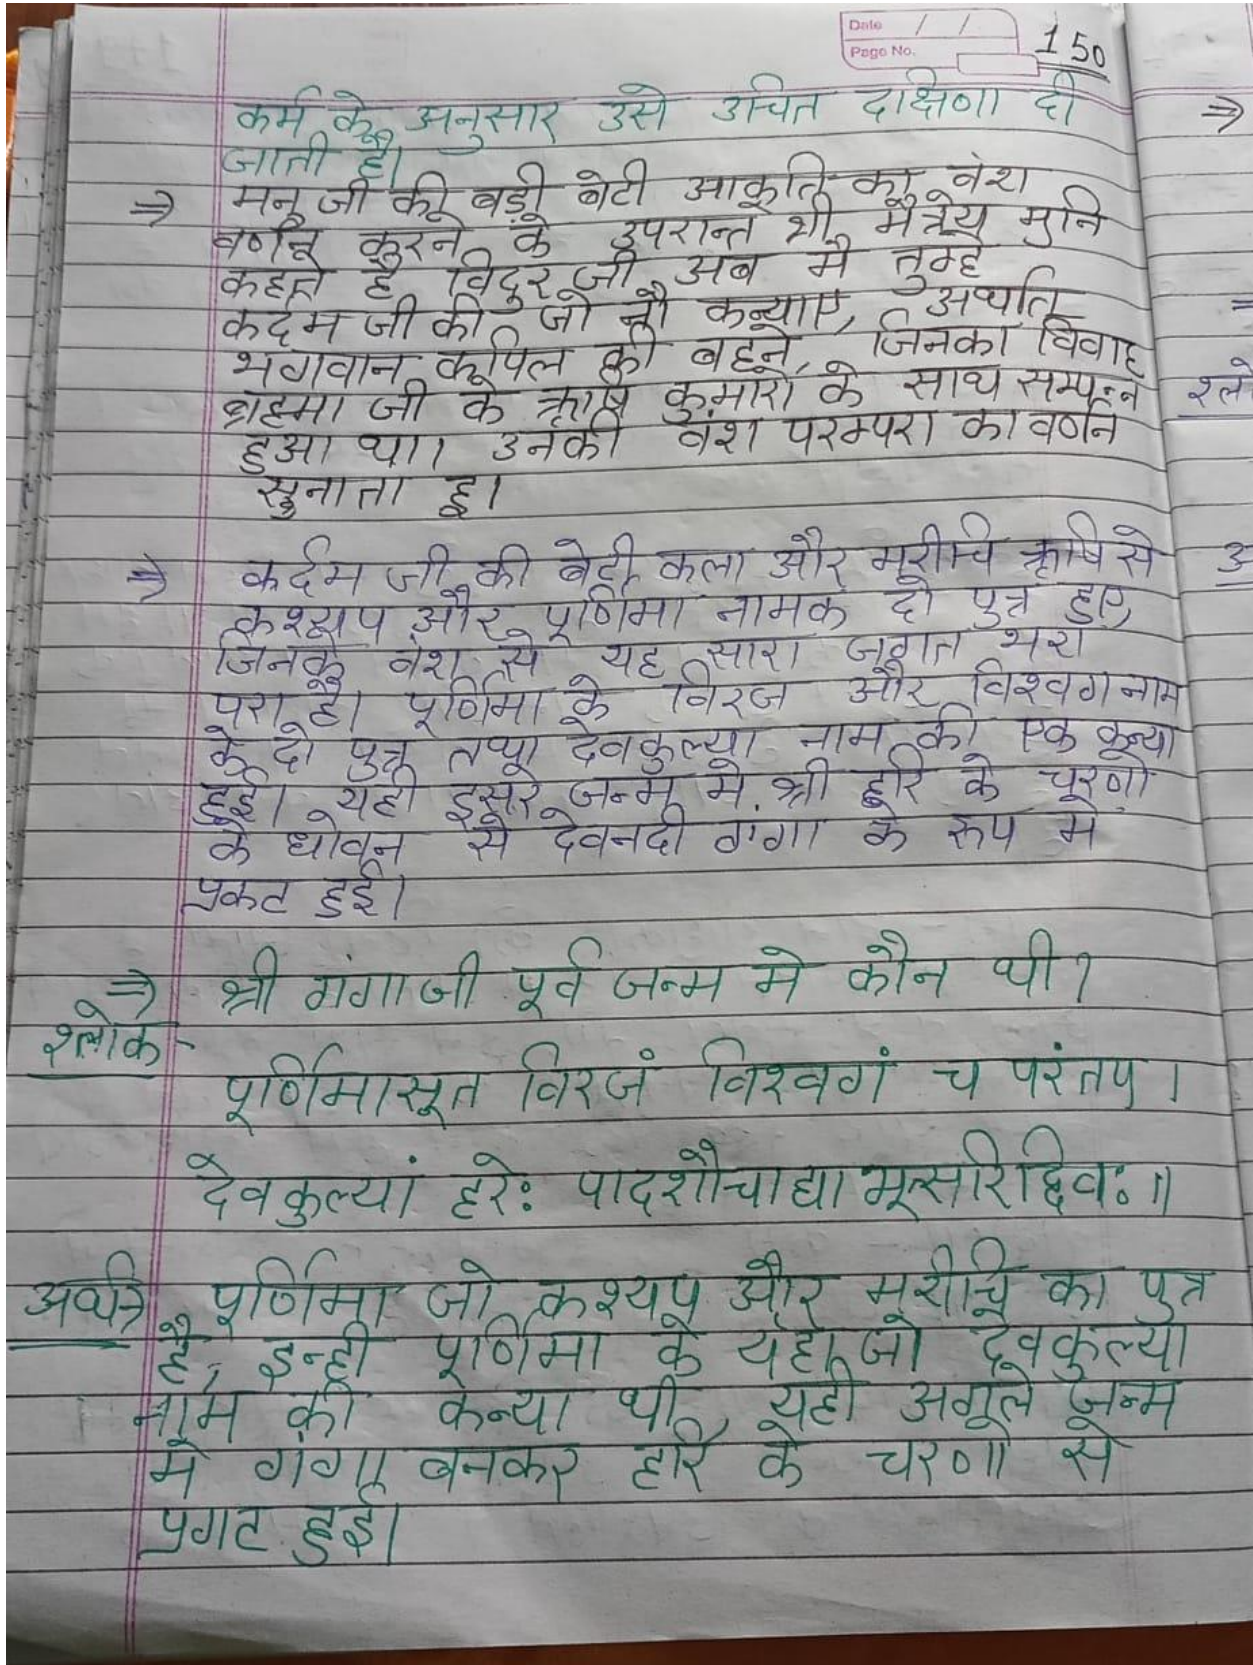 Date / /
Page No.
150
कर्म के अनुसार उसे उचित दक्षिणा दी
जाती है।
⇒ मनु जी की बड़ी बेटी आकूति का वंश
वर्णन करने के उपरान्त श्री मैत्रेय मुनि
कहते है विदुर जी अब मै तुम्हे
कदम जी की जो नौ कन्याए, अर्थात
भगवान कपिल की बहने, जिनका विवाह
ब्रह्मा जी के ऋषि कुमारो के साथ सम्पन्न
हुआ था। उनकी वंश परम्परा का वर्णन
सुनाता हू।
⇒ कर्दम जी की बेटी कला और मरीचि ऋषि से
कश्यप और पूर्णिमा नामक दो पुत्र हुए,
जिनके वंश से यह सारा जगत भरा
परा है। पूर्णिमा के विरज और विश्वग नाम
के दो पुत्र तथा देवकुल्या नाम की एक कन्या
हुई। यही दूसरे जन्म मे श्री हरि के चरणो
के धोवन से देवनदी गंगा के रूप मे
प्रकट हुई।
⇒ श्री गंगा जी पूर्व जन्म मे कौन थी?
श्लोक-
पूर्णिमासूत विरजं विश्वगं च परंतप।
देवकुल्यां हरेः पादशौचाद्याभूत्सरिद्दिवः॥
अर्थात् पूर्णिमा जो कश्यप और मरीचि का पुत्र
है, इन्ही पूर्णिमा के यहा जो देवकुल्या
नाम की कन्या थी, यही अगले जन्म
मे गंगा बनकर हरि के चरणो से
प्रगट हुई।
⇒
=
श्लो
अ